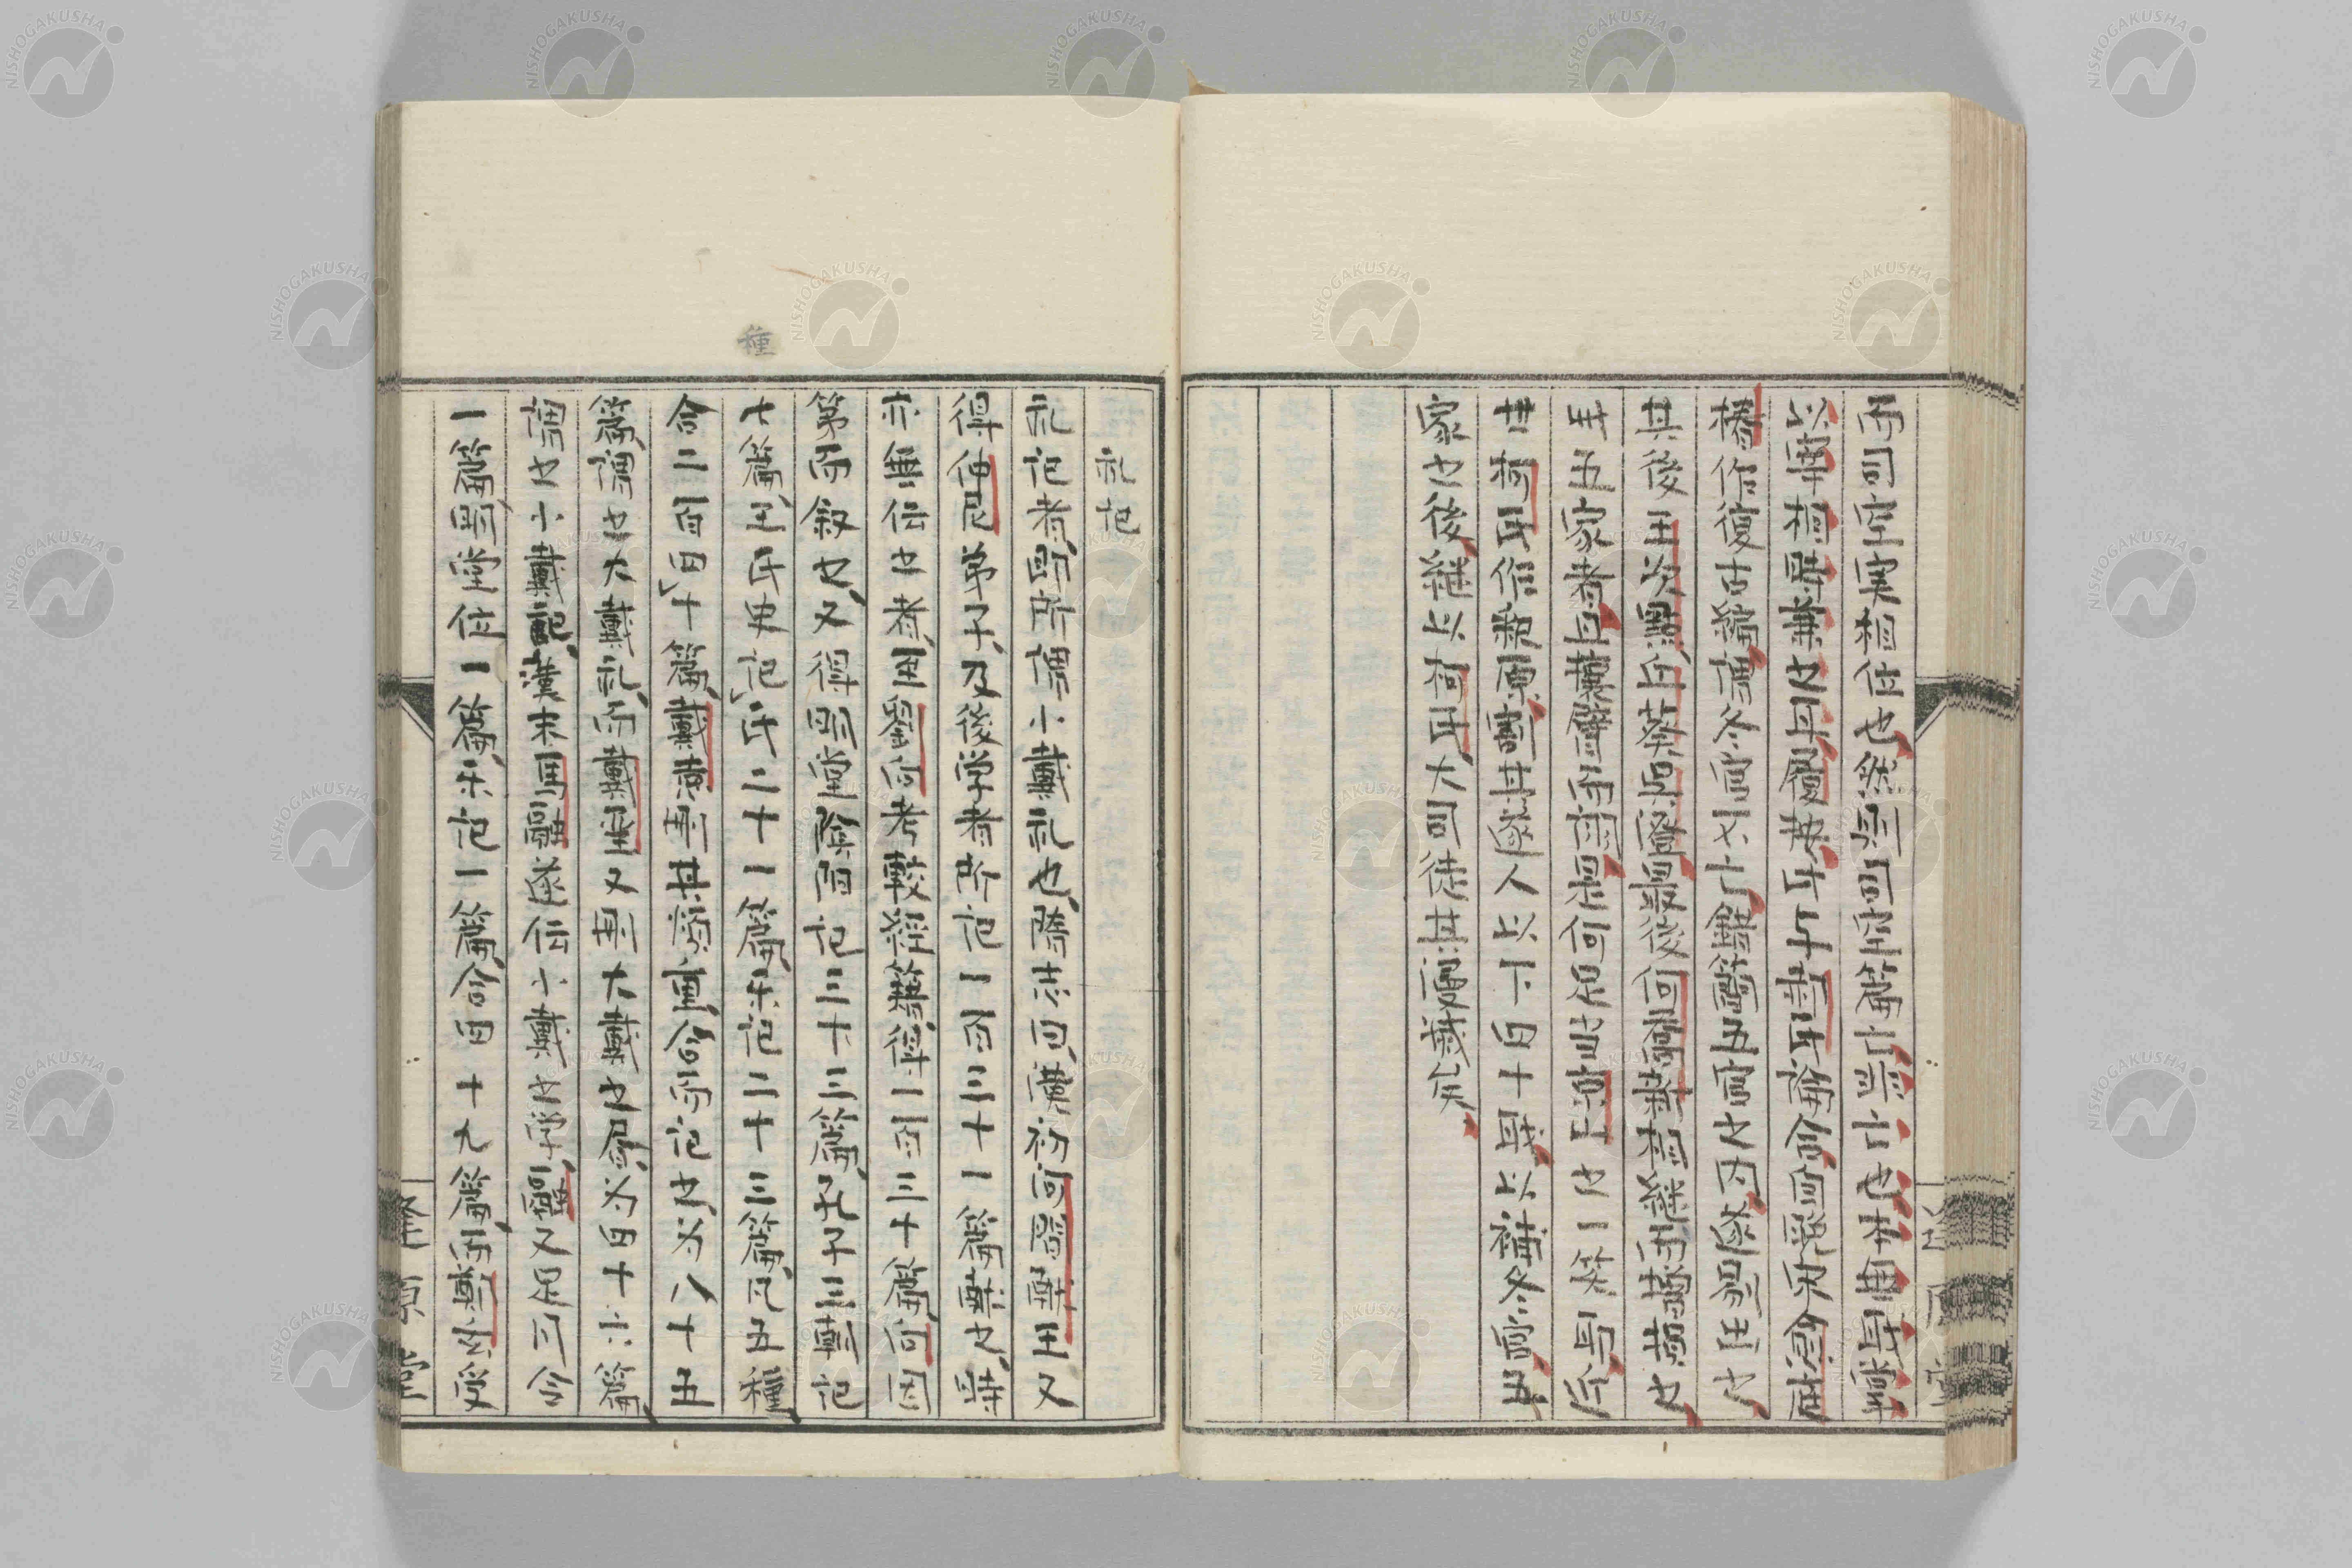 而司空実相位也然則司空篇亡非亡也本無職掌
以宰相時兼之耳丘与氏論合宋俞廷
椿作復古編謂冬官不亡錯簡五官之内遂出之
其後王次點丘葵呉澄最後何喬新相継而攘之
五家者攘臂而是何足当京山之一笑焉所
柯氏作新原割其遂人以下四十職以補冬官五
家之後継以柯氏大司徒其擾矣
種
礼記
礼記者即所謂小戴礼也隋志曰漢初河間献王又
得仲尼弟子及後学者所記一百三十一篇献之時
亦無伝之者至劉向考較経籍得一百三十篇向因
第而叙之又得明堂陰陽記三十三篇孔子三朝記
七篇王氏史記氏二十一篇楽記二十三篇凡五種
合二百四十篇戴徳刪其煩重合而記之為八十五
篇謂之大戴礼而戴聖又刪大戴之書為四十六篇
謂之小戴記漢末馬融遂伝小戴之学融又足月令
一篇明堂位一篇楽記一篇合四十九篇而鄭玄受